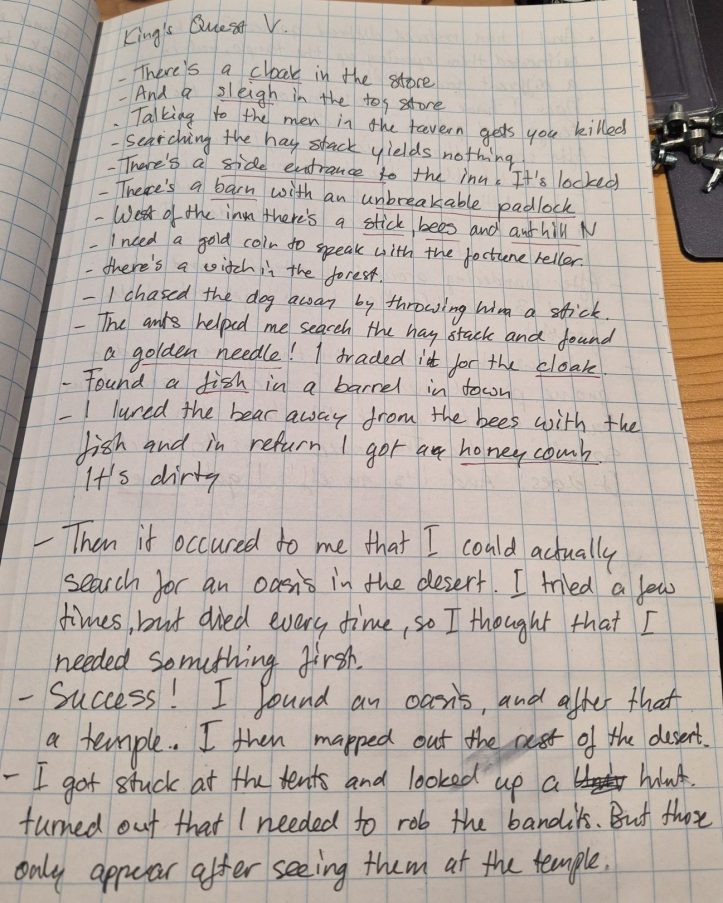 King's Quest V.
- There's a cloak in the store
- And a sleigh in the toy store
- Talking to the men in the tavern gets you killed
- Searching the hay stack yields nothing.
- There's a side entrance to the inn. It's locked
- There's a barn with an unbreakable padlock
- West of the inn there's a stick, bees and anthill N
- I need a gold coin to speak with the fortune teller.
- there's a witch in the forest.
- I chased the dog away by throwing him a stick.
- The ants helped me search the hay stack and found
a golden needle! I traded it for the cloak.
- Found a fish in a barrel in town
- I lured the bear away from the bees with the
fish and in return I got a honeycomb.
It's dirty
- Then it occured to me that I could actually
search for an oasis in the desert. I tried a few
times, but died every time, so I thought that I
needed something first.
- Success! I found an oasis, and after that
a temple.. I then mapped out the rest of the desert.
- I got stuck at the tents and looked up a hint.
turned out that I needed to rob the bandits. But those
only appear after seeing them at the temple.